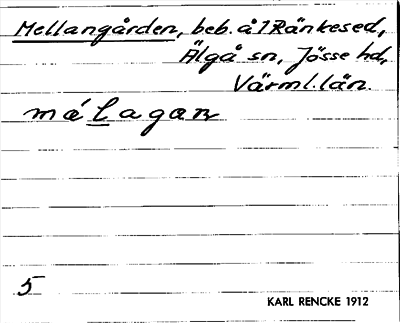 Mellangården, beb. å 1 Ränkesed,
Älgå sn, Jösse hd,
Värml. län.
máLagaṉ
5
KARL RENCKE 1912